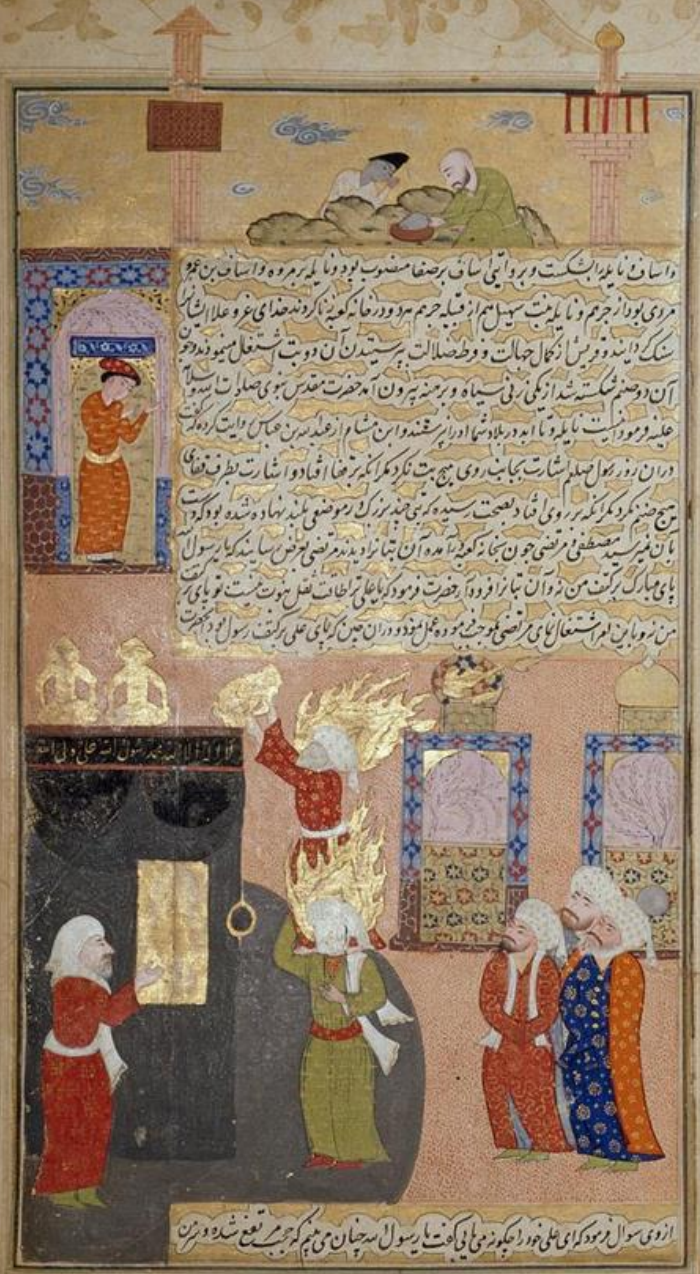 و اساف و نایله را بشکست و بروایتی اساف بر صفا منصوب بود و نایله بر مروه و اساف بن عمرو
مردی بود از جرهم و نایله بنت سهیل هم از قبیله جرهم بود و در خانه کعبه زنا کردند خدای عز و علا ایشانرا
سنک کردانید و قریش از کمال جهالت و فرط ضلالت بپرستیدن آن دو بت اشتغال مینمودند و چون
آن دو صنم شکسته شد از یکی زنی سیاه و برهنه بیرون آمد حضرت مقدس نبوی صلوات الله و سلامه
علیه فرمود اینست نایله و تا ابد در بلاد شما او را نپرستند و ابن هشام از عبدالله بن عباس روایت کرده که گفت
در ان روز رسول صلعم اشارت بجانب روی هیچ بت نکرد مکر انکه بر قفا افتاد و اشارت بطرف قفای
هیچ صنم نکرد مکر انکه بر روی افتاد بصحت رسیده که بتی چند بزرک در موضعی بلند نهاده شده بود که دست
بان نمیرسید مصطفی و مرتضی چون بخانه کعبه در آمده آن بتانرا دیدند مرتضی بعرض رسانید که یا رسول الله
پای مبارک بر کتف من نه و آن بتانرا فرود آر حضرت فرمود که یا علی ترا طاقت ثقل نبوت نیست تو پای بر کتف
من نه و باین امر اشتغال نمای مرتضی بموجب فرموده عمل نمود و در ان حین که پای علی بر کتف رسول بود حضرت
لا اله الا الله محمد رسول الله علی ولی الله
از وی سوال فرمود که ای علی خود را چگونه می یابی گفت یا رسول الله چنان می بینم که حجب مرتفع شده و سر من